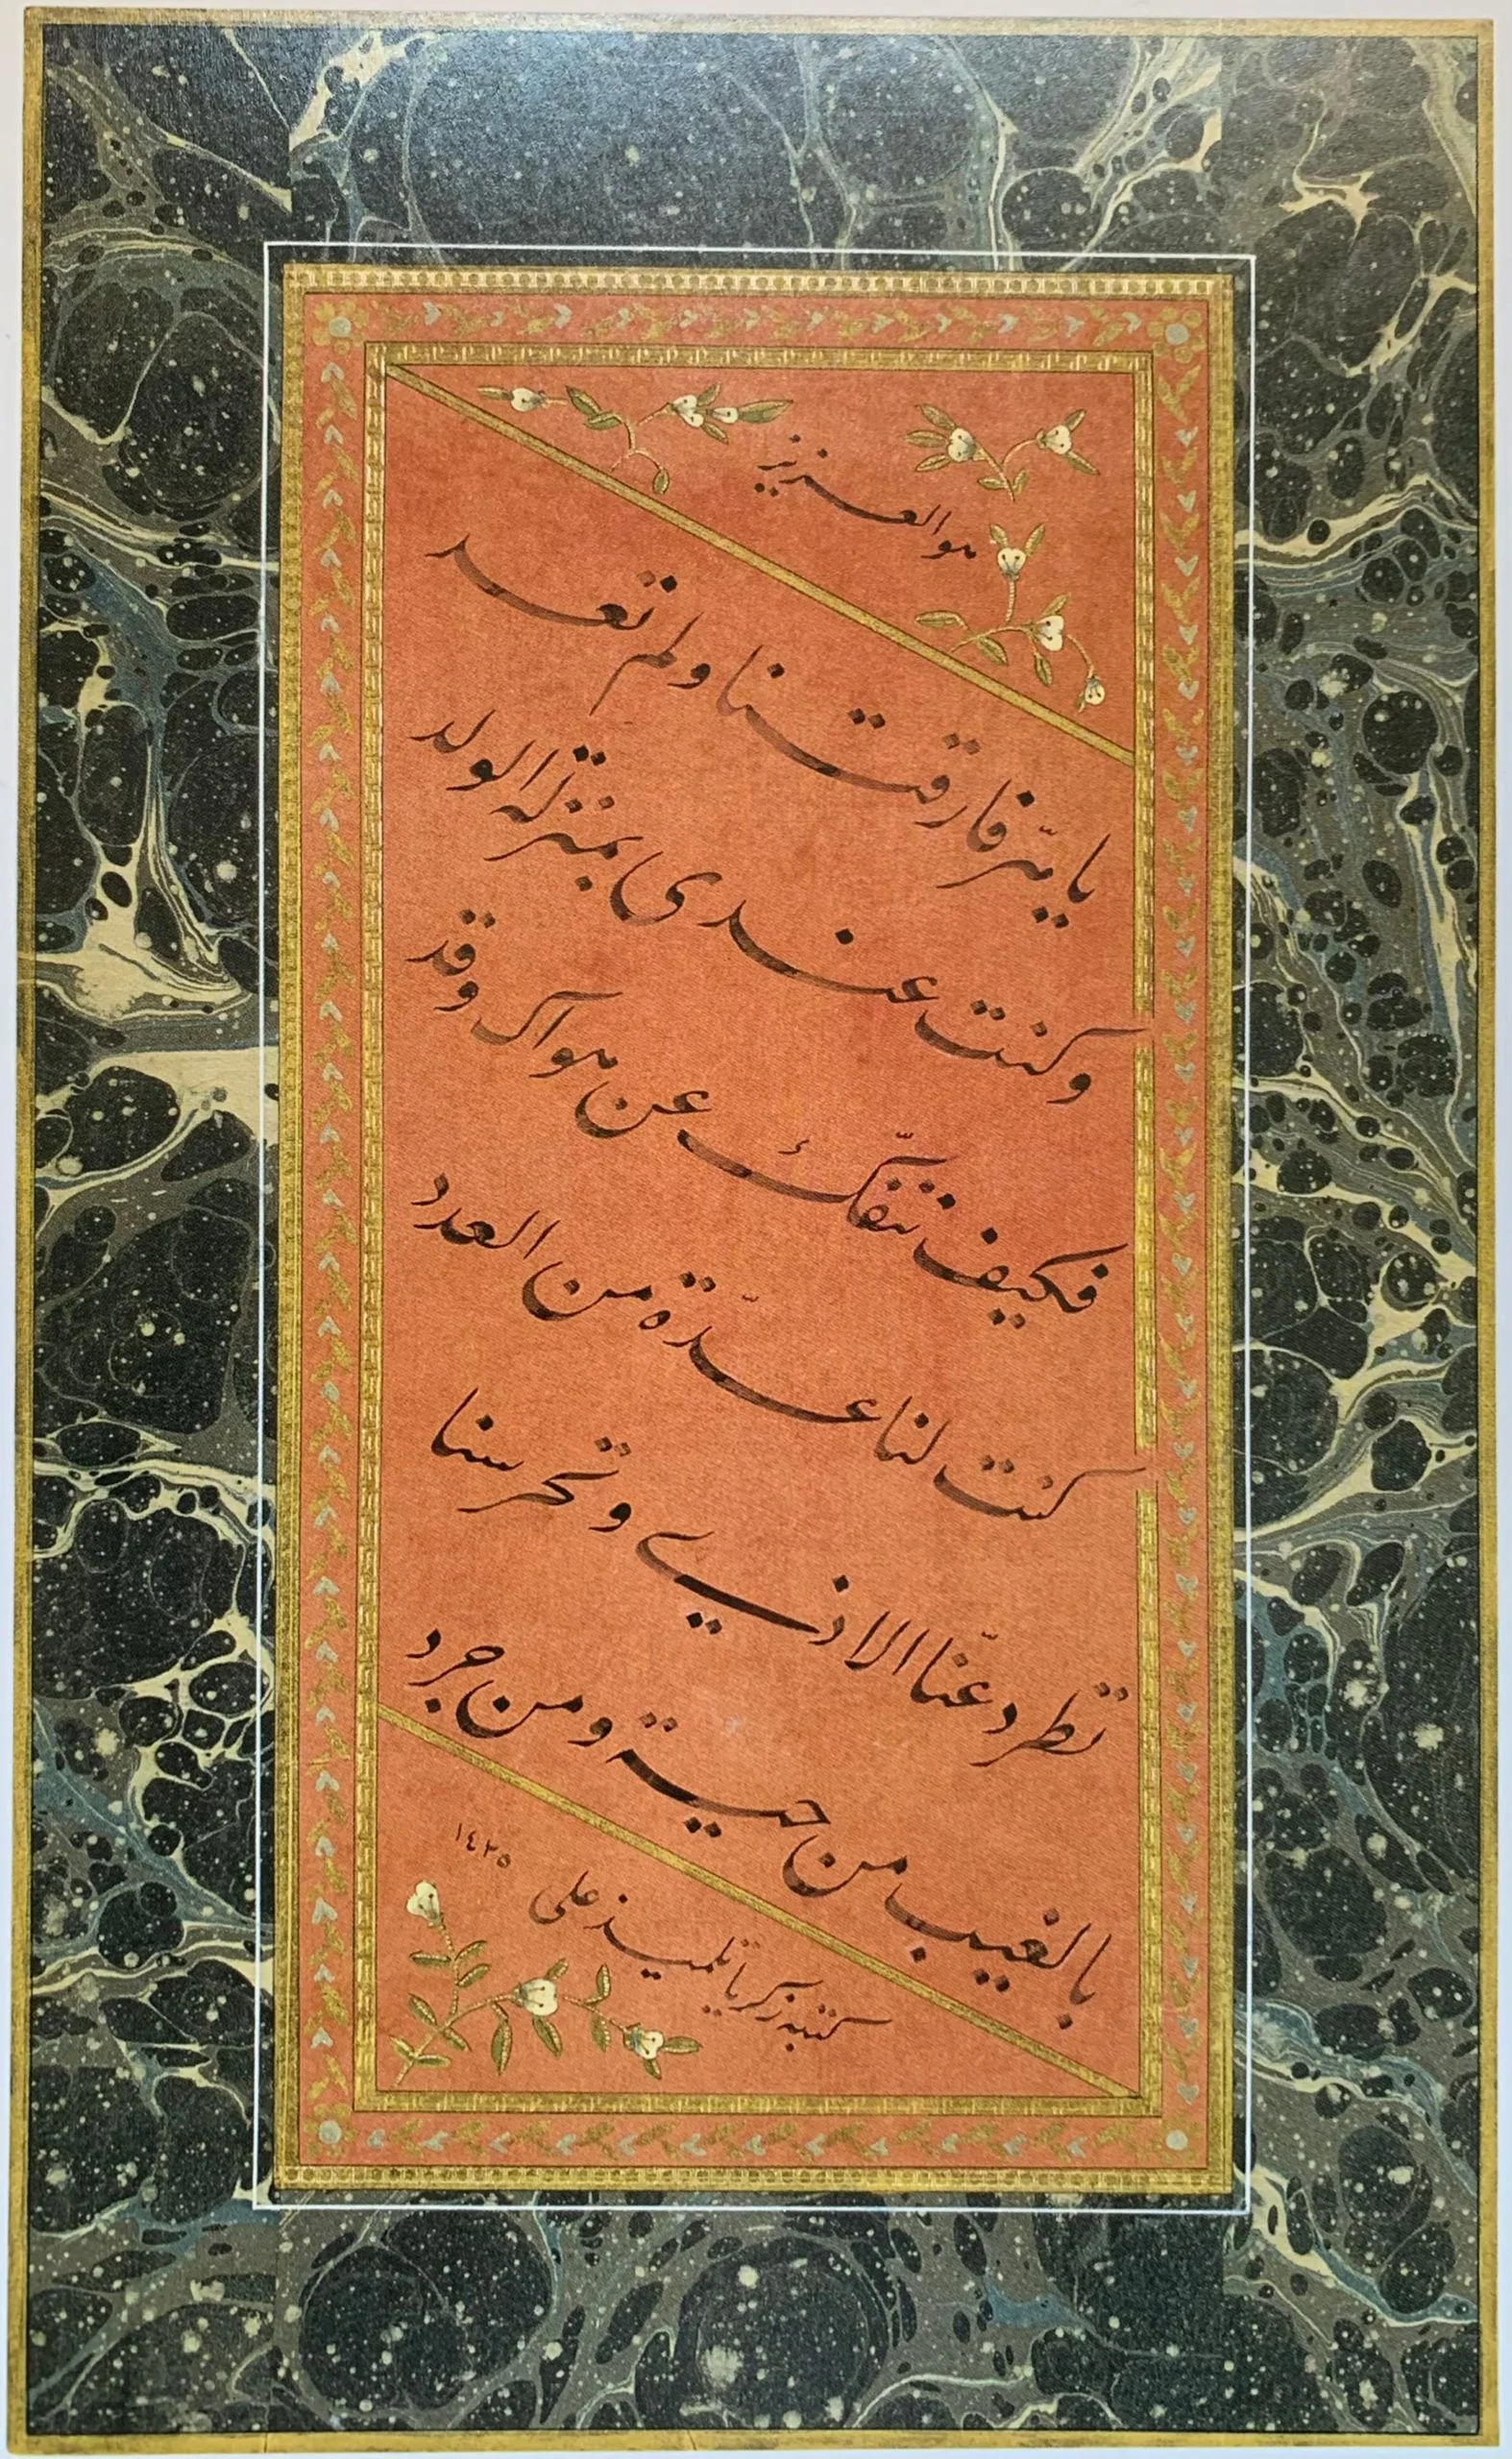 هو العزيز
يا هرّ فارقتنا ولم تعد
وكنت عندي بمنزلة الولد
فكيف ننفكّ عن هواك وقد
كنت لنا عدّة من العدد
تطرد عنّا الاذي وتحرسنا
بالغيب من حية ومن جرد
كتبه زكريا تلميذ علي
١٤٢٥